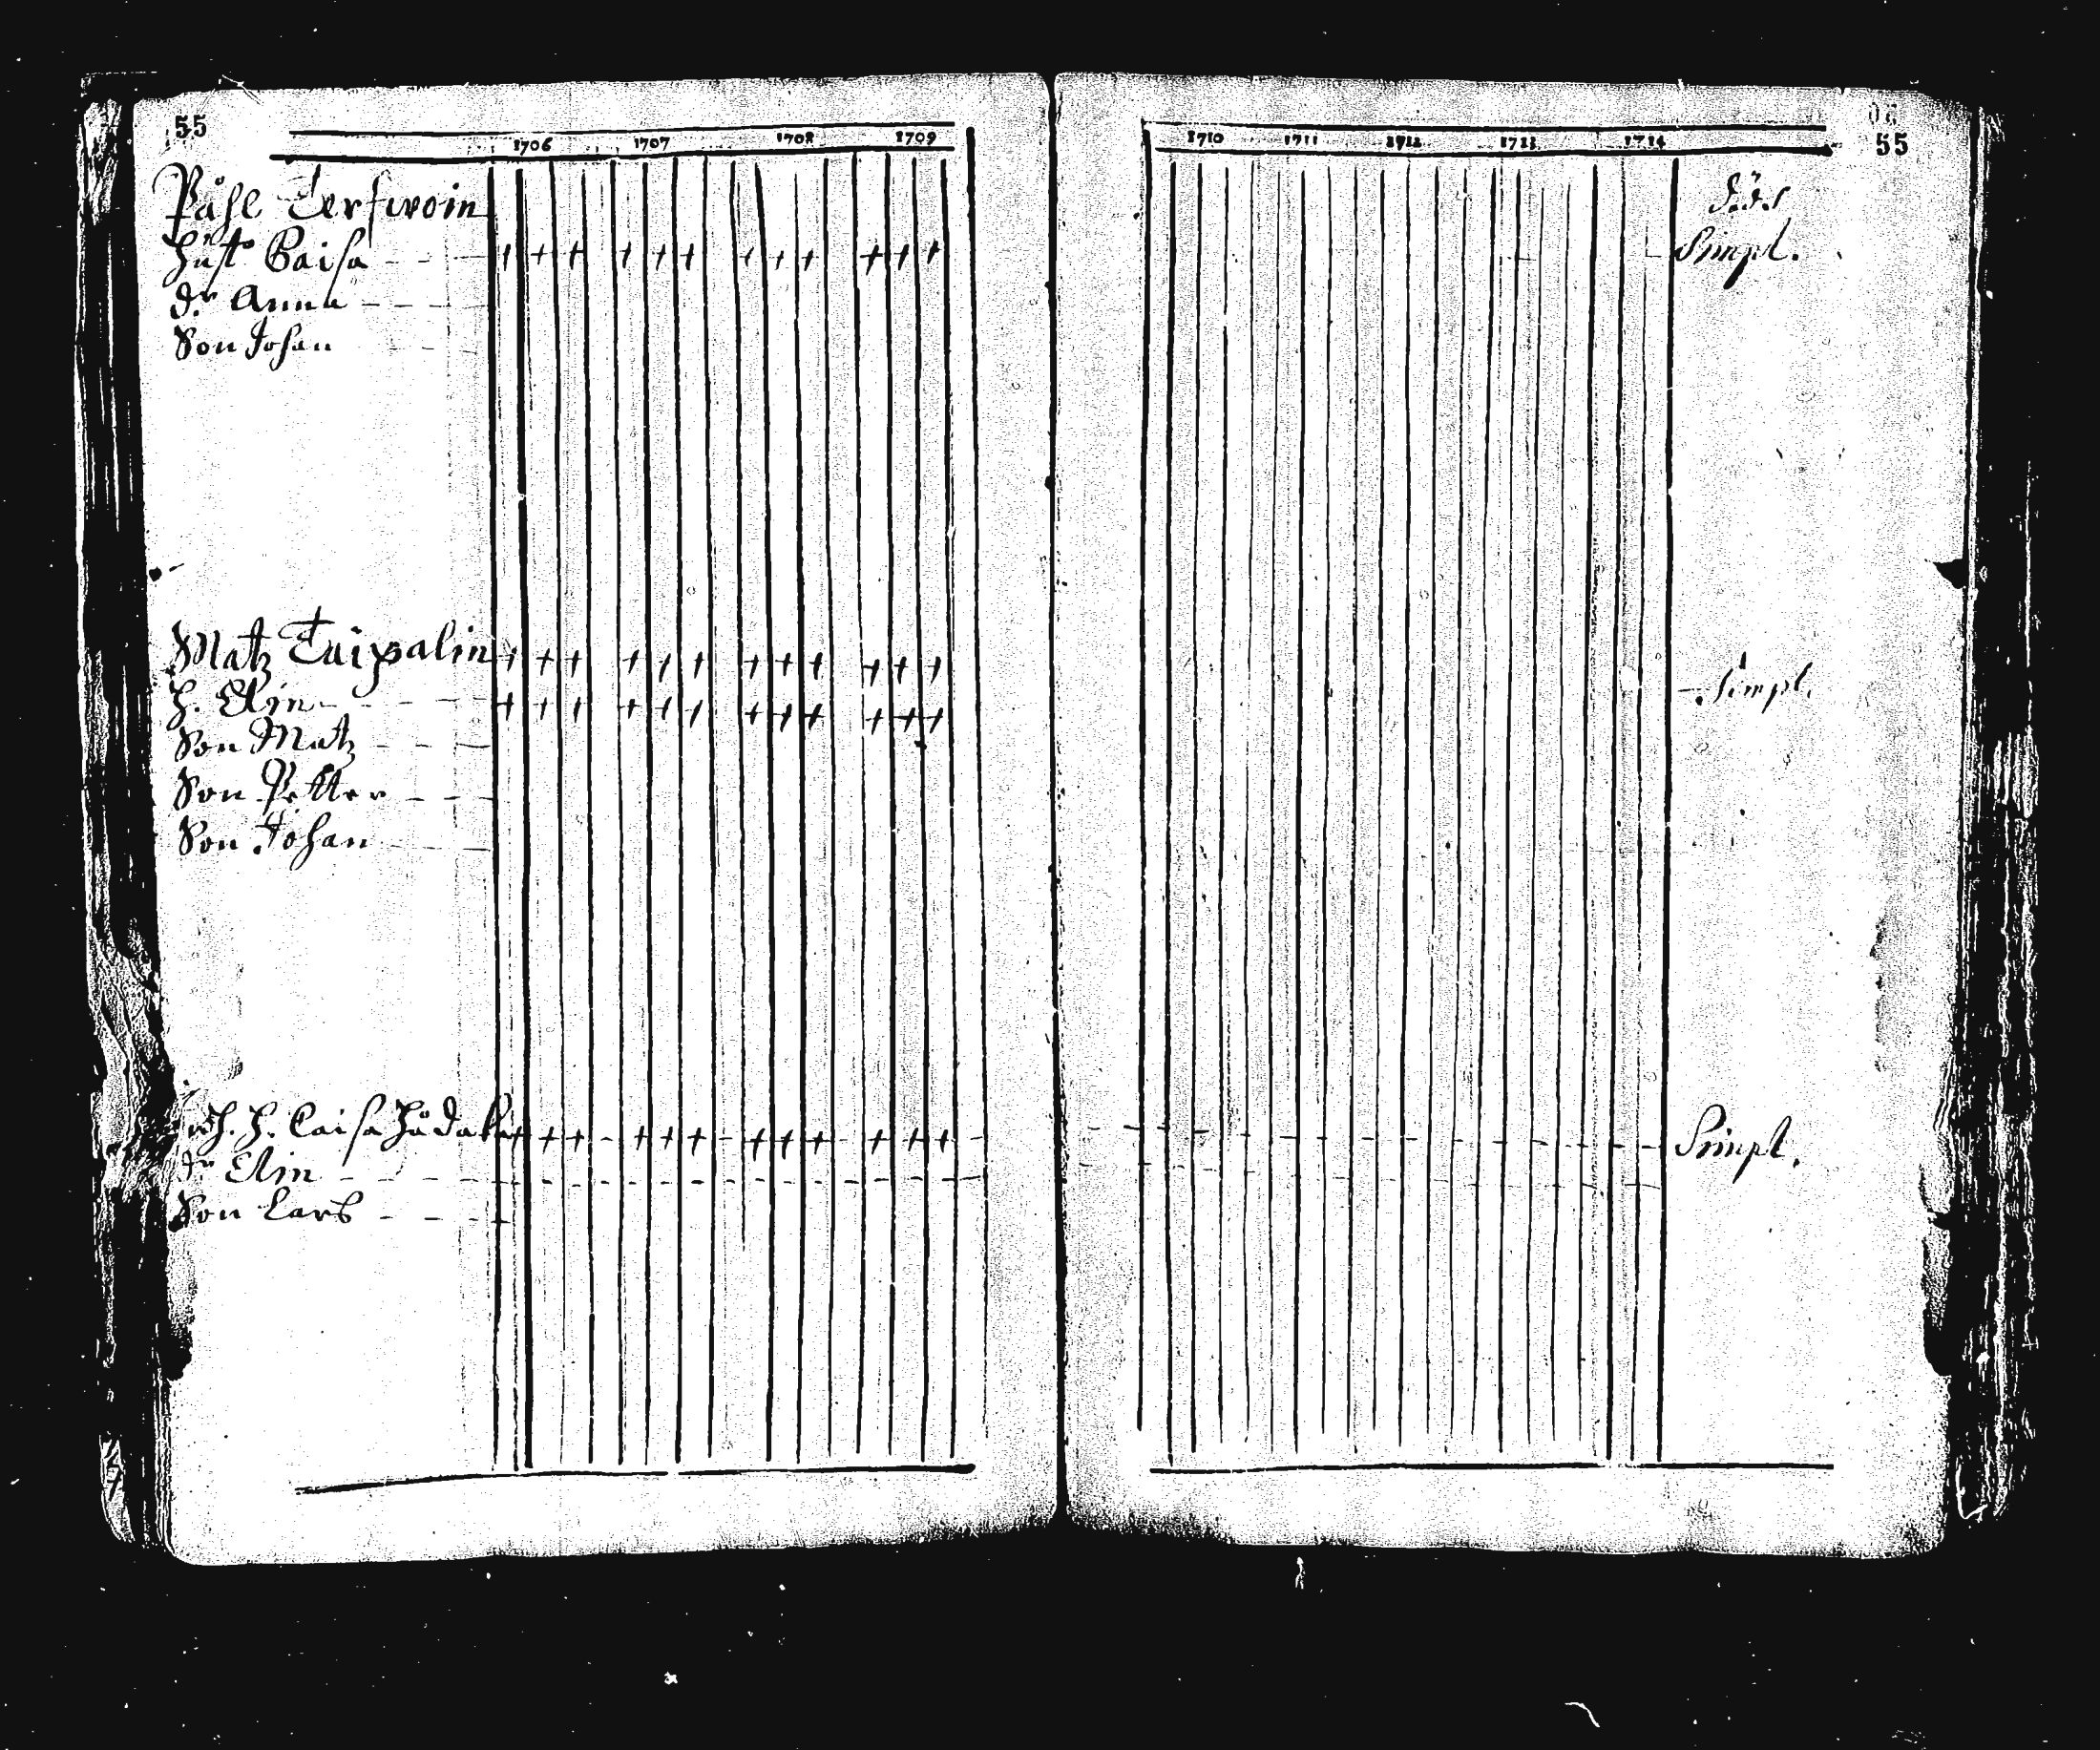 55
1706 1707 1708 1709
Påhl Terfwoin
Hust Caisa - - - + + + + + + + + + + + +
dr Anna - - - -
Son Johan - - -
Matz Taipalin + + + + + + + + + + + +
h. Elin - - - - + + + + + + + + + + + +
Son Matz - - -
Son Petter - - -
Son Johan - - -
h. Caisa + + + - + + + - + + + - + + + -
dr Elin - - - - - - - - - - - - - - - -
Son Lars - - - -
55
1710 1711 1712 1713 1714
död
Simpl.
Simpl.
Simpl.